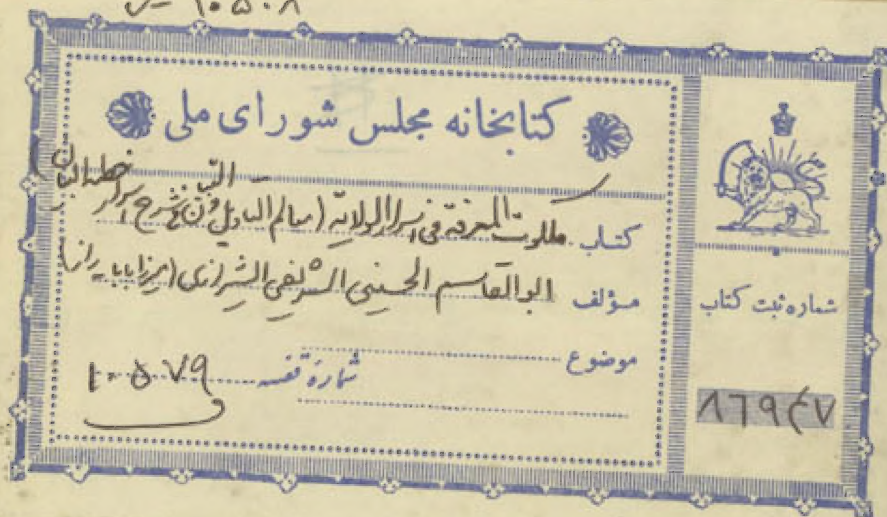 ۱۰۵۰۸
کتابخانه مجلس شورای ملی
کتاب ملکوت المعرفة فی اسرار الولایة (معالم التاویل و التبیان فی شرح اسرار خطبة البیان)
مؤلف ابوالقاسم الحسینی الشریفی الشیرازی (میرزا بابا راز)
موضوع
شمارهٔ قفسه ۱۰۵۷۹
شماره ثبت کتاب
۸۶۹۴۷